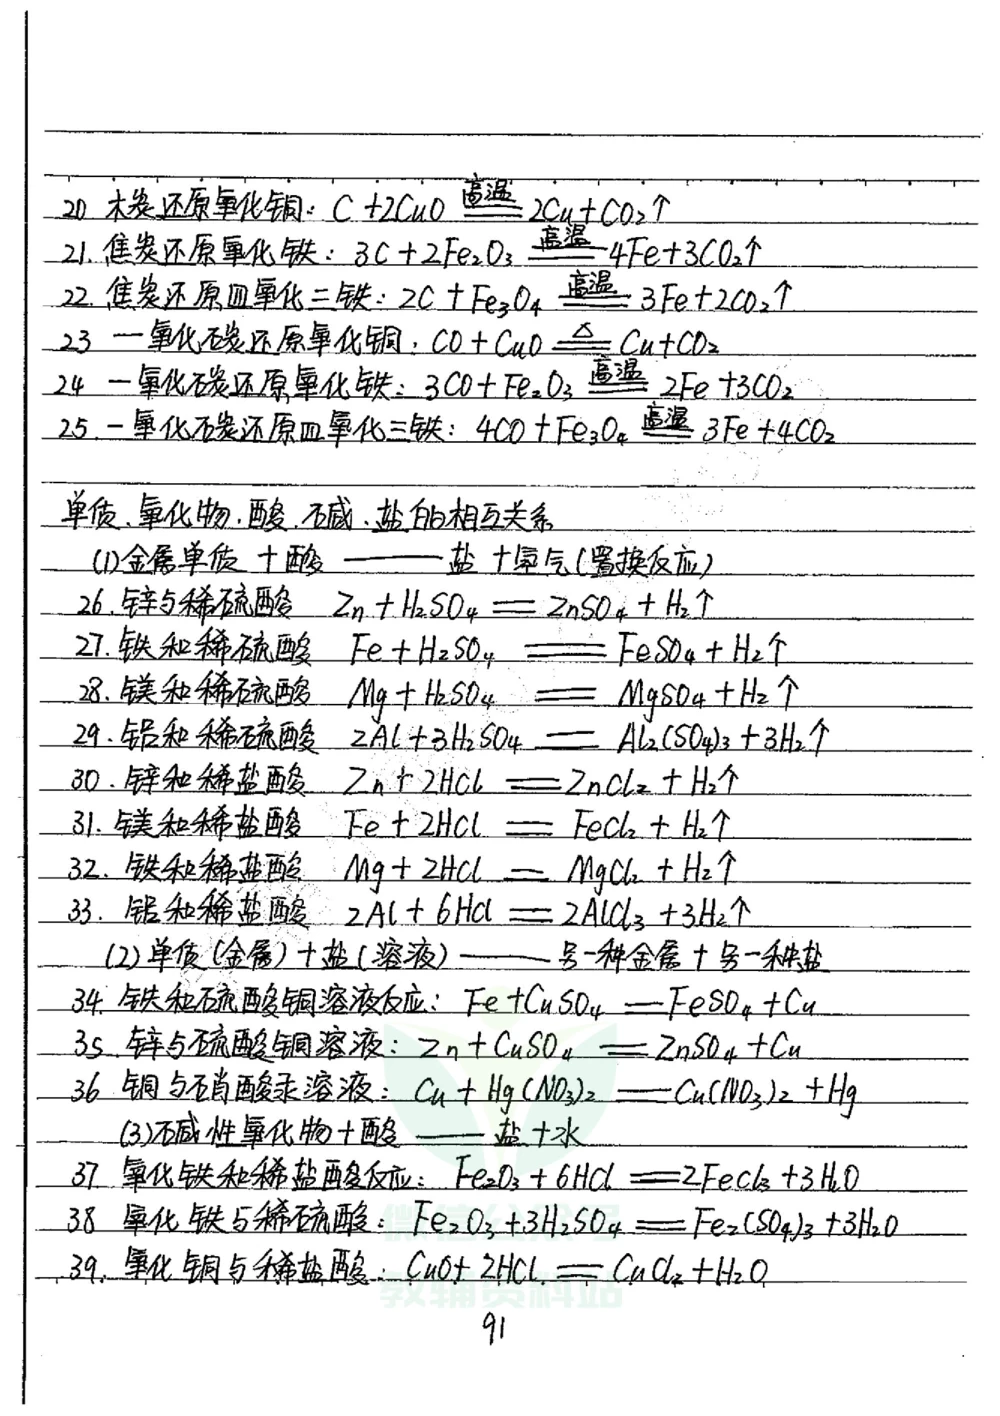 20 木炭还原氧化铜: C+2CuO 高温 2Cu+CO₂↑
21. 焦炭还原氧化铁: 3C+2Fe₂O₃ 高温 4Fe+3CO₂↑
22. 焦炭还原四氧化三铁: 2C+Fe₃O₄ 高温 3Fe+2CO₂↑
23 一氧化碳还原氧化铜: CO+CuO △ Cu+CO₂
24 一氧化碳还原氧化铁: 3CO+Fe₂O₃ 高温 2Fe+3CO₂
25. 一氧化碳还原四氧化三铁: 4CO+Fe₃O₄ 高温 3Fe+4CO₂
单质、氧化物、酸、碱、盐的相互关系
(1)金属单质+酸——盐+氢气(置换反应)
26. 锌与稀硫酸 Zn+H₂SO₄=ZnSO₄+H₂↑
27. 铁和稀硫酸 Fe+H₂SO₄=FeSO₄+H₂↑
28. 镁和稀硫酸 Mg+H₂SO₄=MgSO₄+H₂↑
29. 铝和稀硫酸 2Al+3H₂SO₄=Al₂(SO₄)₃+3H₂↑
30. 锌和稀盐酸 Zn+2HCl=ZnCl₂+H₂↑
31. 镁和稀盐酸 Fe+2HCl=FeCl₂+H₂↑
32. 铁和稀盐酸 Mg+2HCl=MgCl₂+H₂↑
33. 铝和稀盐酸 2Al+6HCl=2AlCl₃+3H₂↑
(2)单质(金属)+盐(溶液)——另一种金属+另一种盐
34. 铁和硫酸铜溶液反应: Fe+CuSO₄=FeSO₄+Cu
35 锌与硫酸铜溶液: Zn+CuSO₄=ZnSO₄+Cu
36 铜与硝酸汞溶液: Cu+Hg(NO₃)₂=Cu(NO₃)₂+Hg
(3)碱性氧化物+酸——盐+水
37 氧化铁和稀盐酸反应: Fe₂O₃+6HCl=2FeCl₃+3H₂O
38 氧化铁与稀硫酸: Fe₂O₃+3H₂SO₄=Fe₂(SO₄)₃+3H₂O
39. 氧化铜与稀盐酸: CuO+2HCl=CuCl₂+H₂O
教辅资料站
91